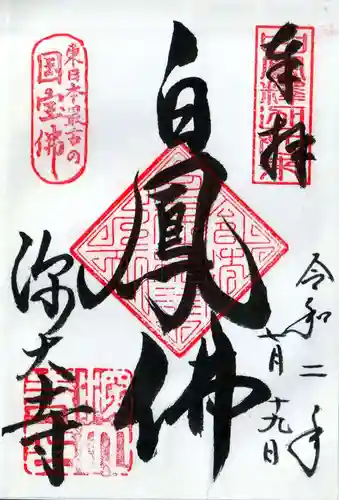 奉拝
令和二年
七月十九日
白鳳佛
東日本最古の
国宝佛
深大寺